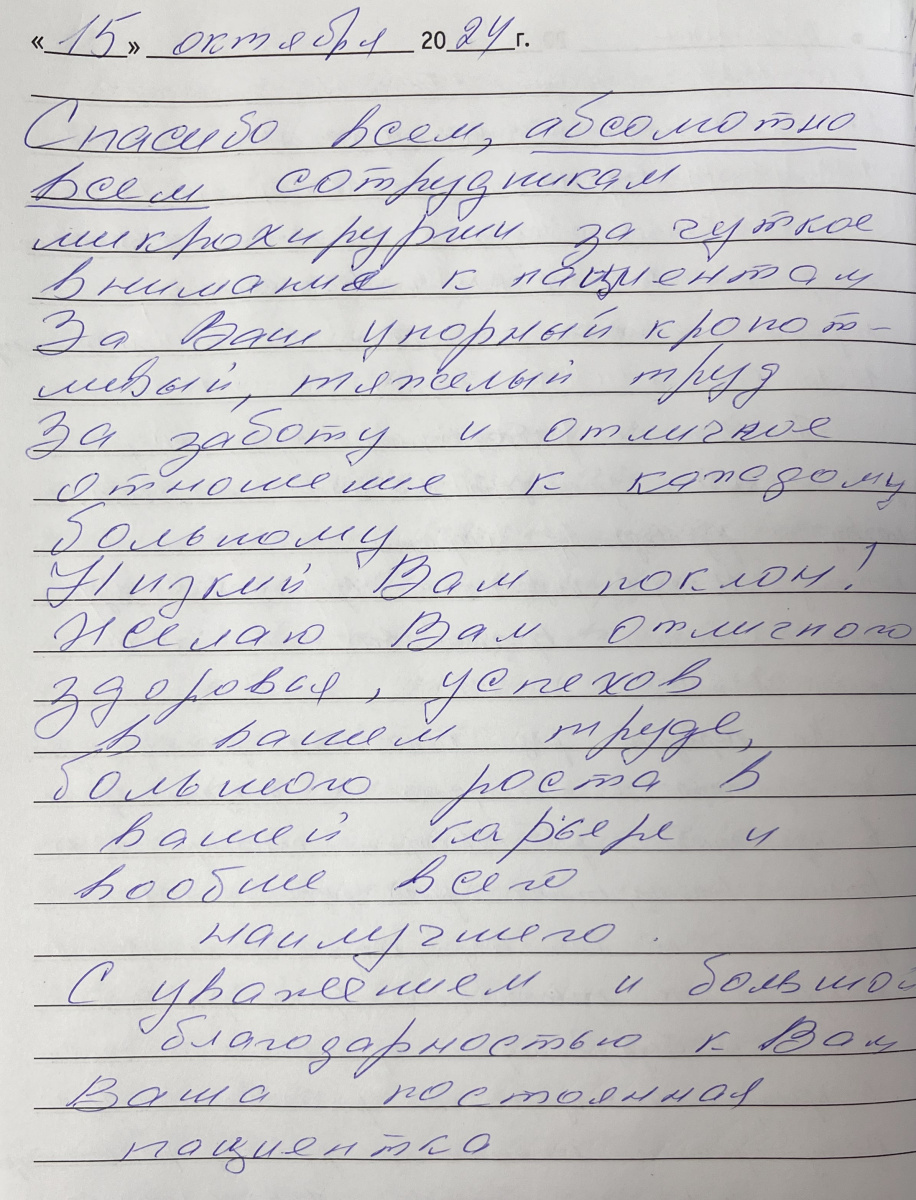 « 15 » октября 2024 г.
Спасибо всем, абсолютно
всем сотрудникам
микрохирургии за чуткое
внимание к пациентам
За Ваш упорный кропот-
ливый, тяжелый труд
За заботу и отличное
отношение к каждому
больному
Низкий Вам поклон!
Желаю Вам отличного
здоровья, успехов
в вашем труде,
большого роста в
вашей карьере и
вообще всего
наилучшего.
С уважением и большой
благодарностью к Вам
Ваша постоянная
пациентка